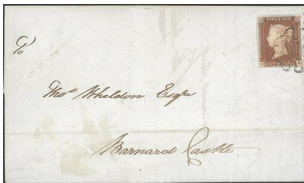 POSTAGE
Thos. Wheldon Esqre
Barnard Castle